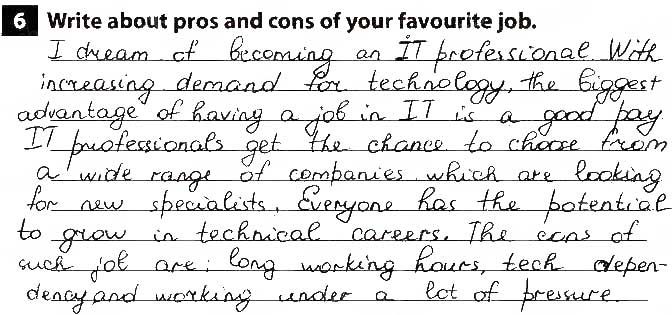 6 Write about pros and cons of your favourite job.
I dream of becoming an IT professional With
increasing demand for technology, the biggest
advantage of having a job in IT is a good pay
IT professionals get the chance to choose from
a wide range of companies which are looking
for new specialists. Everyone has the potential
to grow in technical careers. The cons of
such job are: long working hours, tech depen-
dency and working under a lot of pressure.